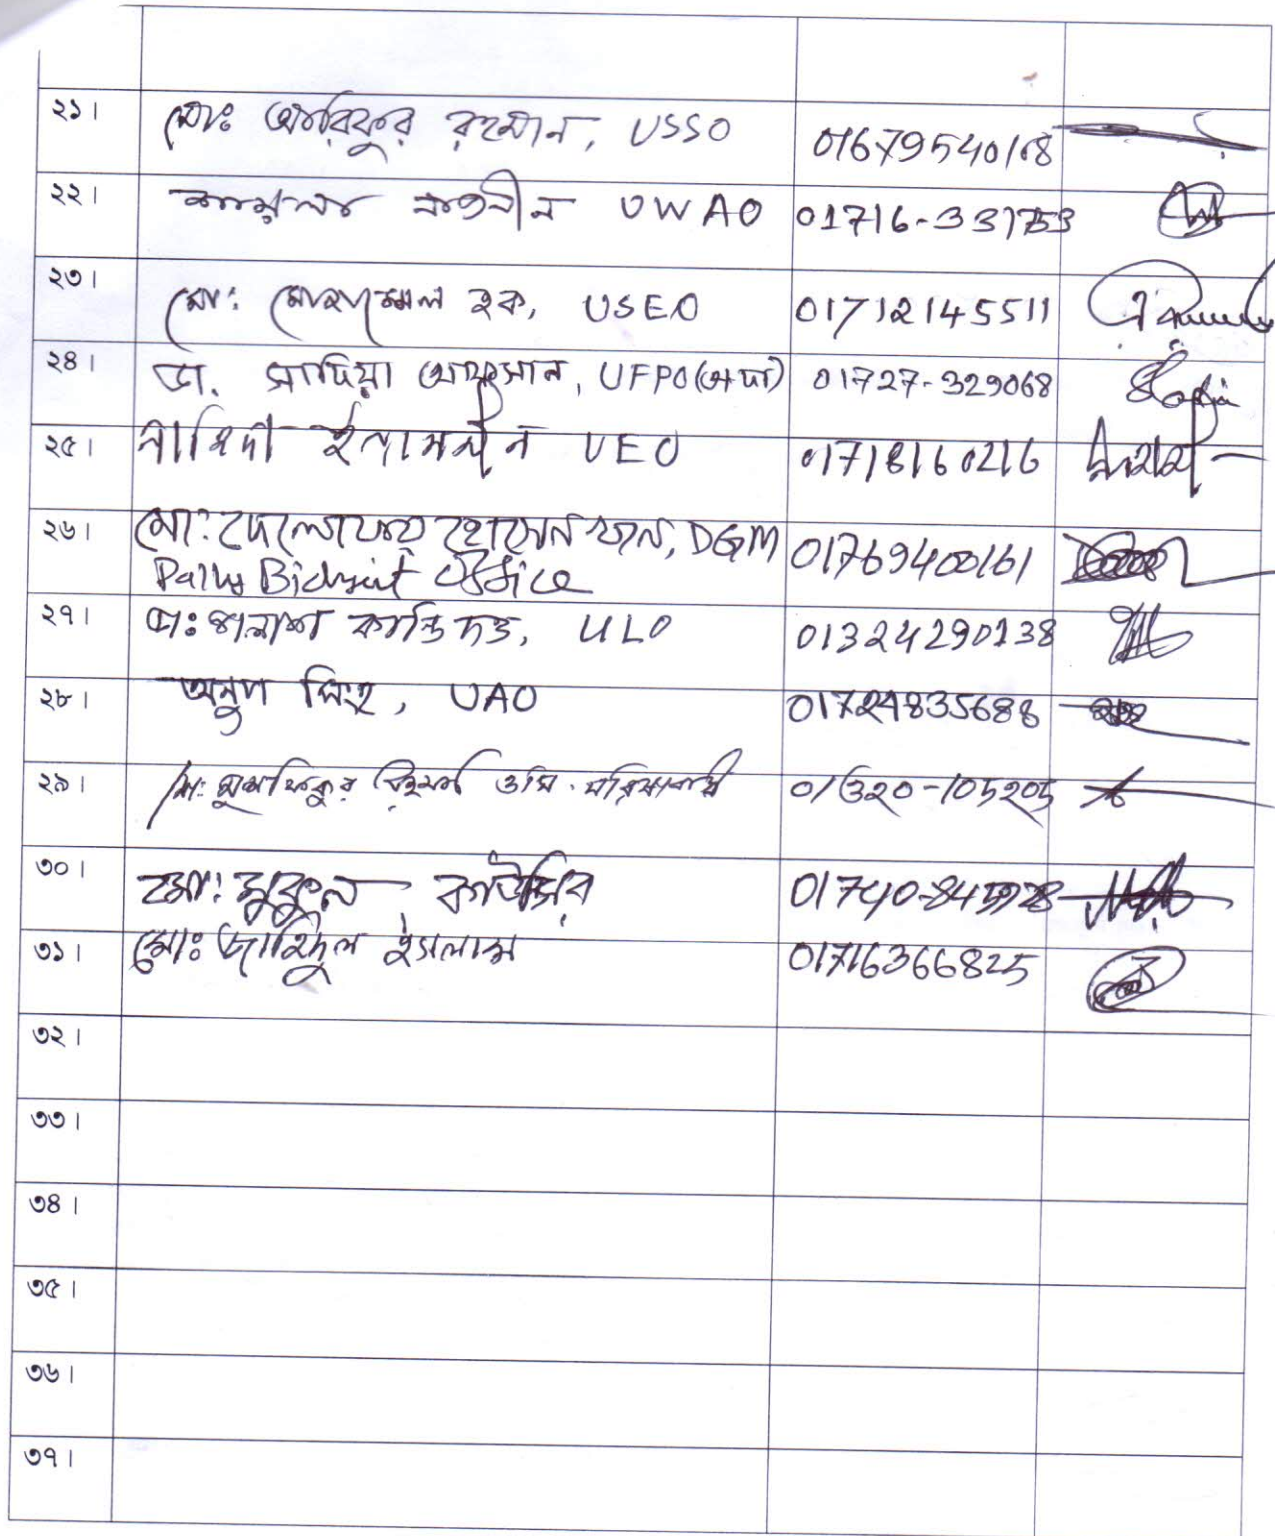 ২১। মোঃ আরিফুর রহমান, USSO 01679540168
২২। নাজনীন UWAO 01716-331753
২৩। মো: মোজাম্মেল হক, USEO 01712145511
২৪। ডা. সাদিয়া আফসান, UFPO(অঃদাঃ) 01727-329068
২৫। নাহিদা ইয়াসমীন UEO 01718160216
২৬। মো: দেলোয়ার হোসেন খান, DGM 01769400161
Pally Bidyut Office
২৭। পলাশ কান্তি দত্ত, ULO 01324290138
২৮। অনুপ সিংহ, UAO 01724835688
২৯। মো: মুশফিকুর রহমান ওসি 01320-105205
৩০। মো: মুকুল 01740-
৩১। মোঃ জাহিদুল ইসলাম 01716366825
৩২।
৩৩।
৩৪।
৩৫।
৩৬।
৩৭।